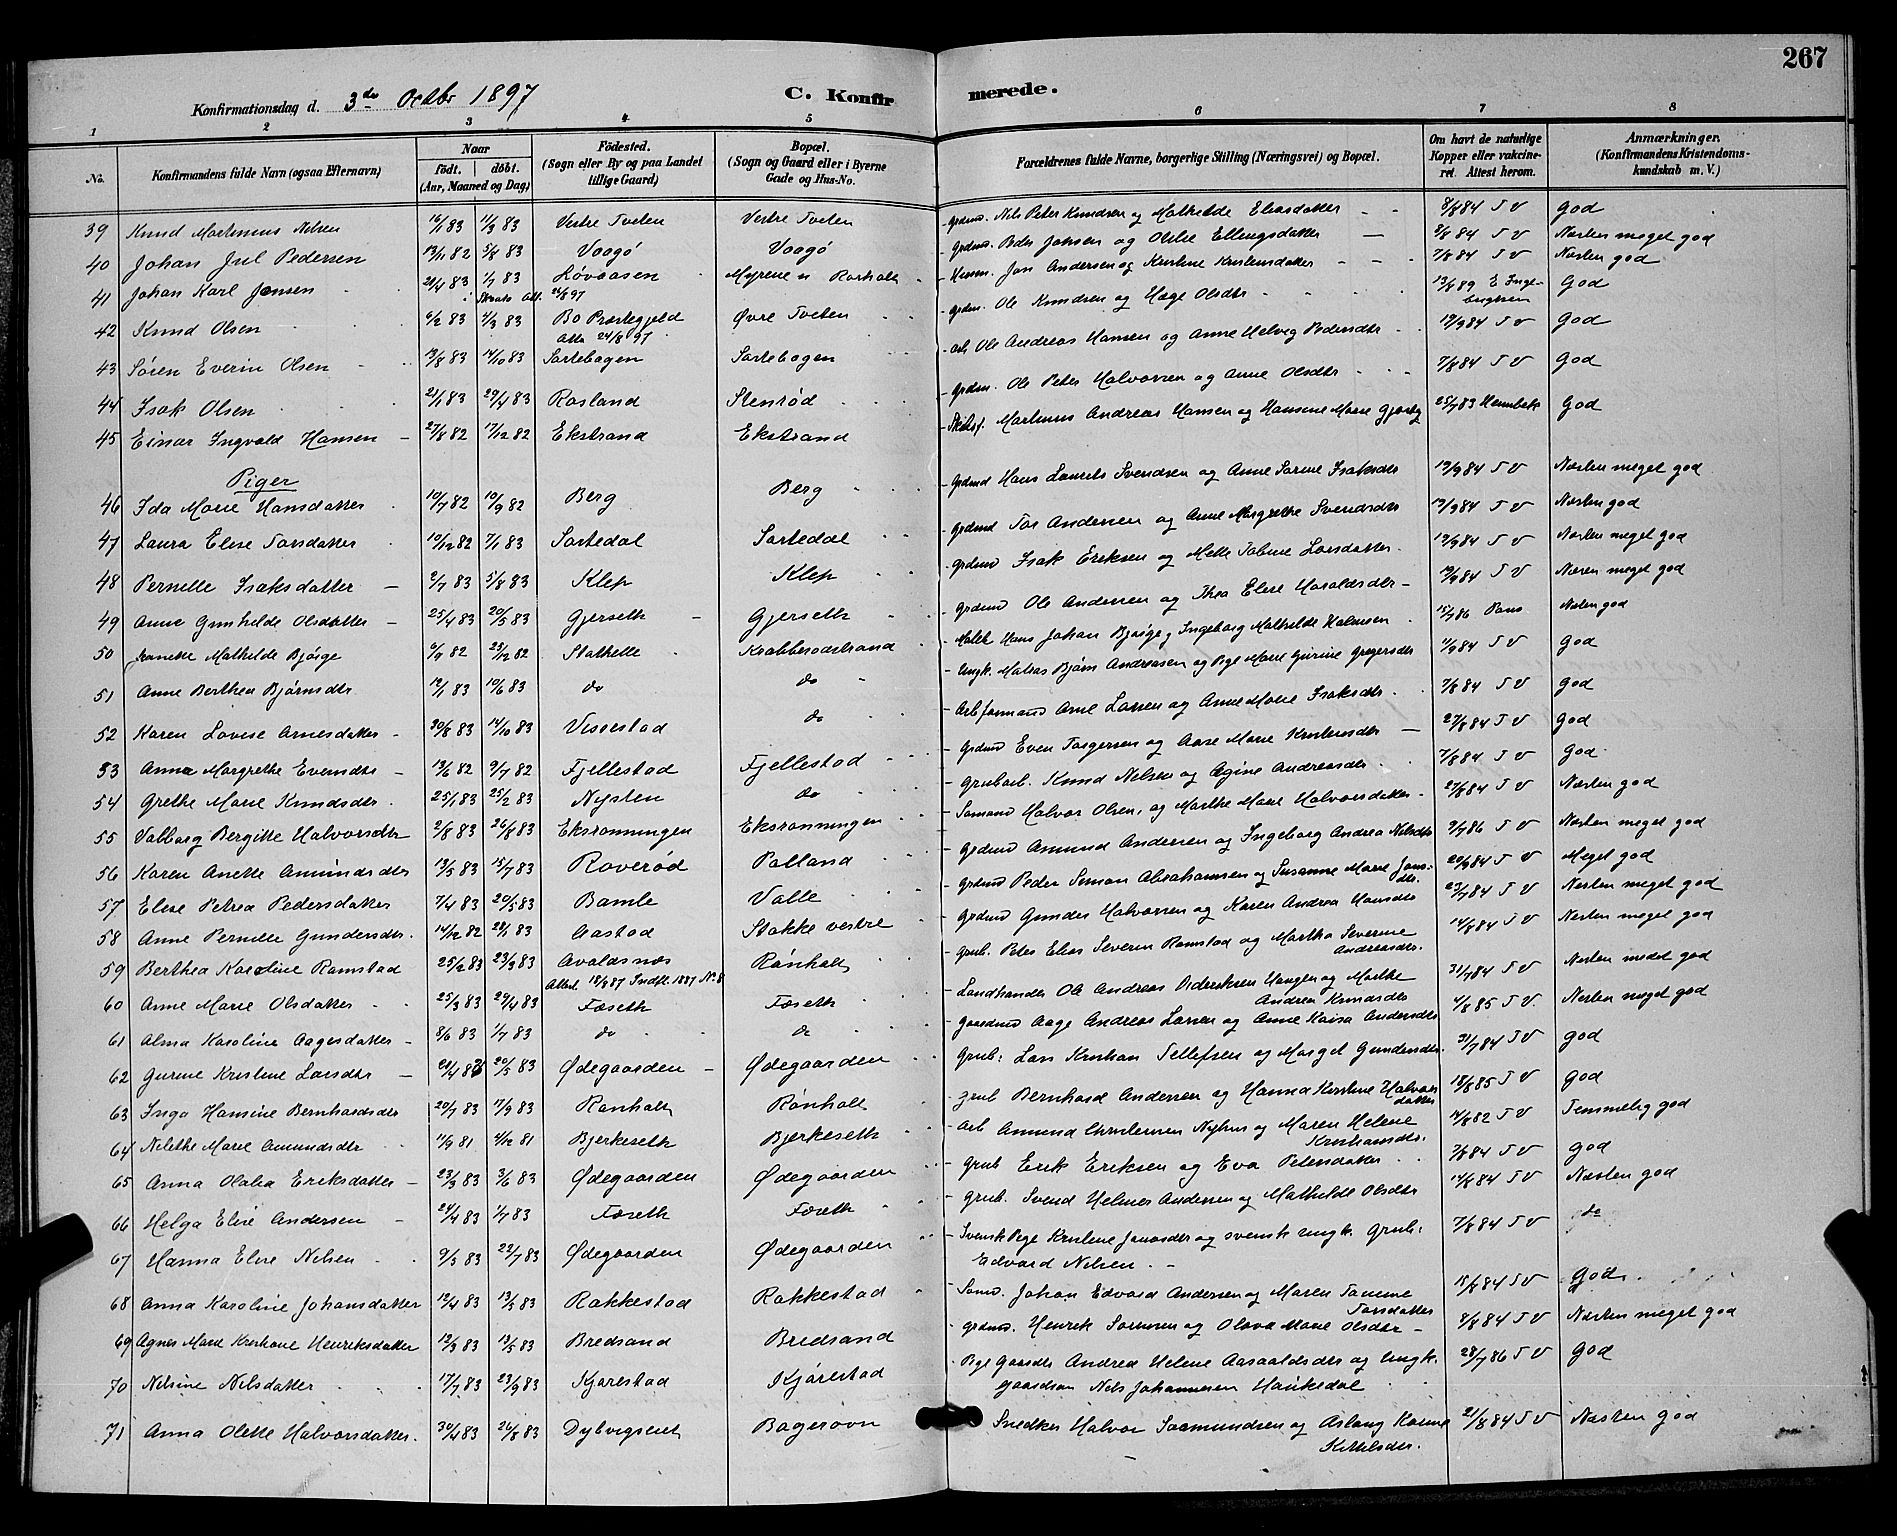 267
Konfirmationsdag d. 3die Octbr 1897 C. Konfirmerede.
1 2 3 4 5 6 7 8
No. Konfirmandens fulde Navn (ogsaa Efternavn) Naar født. døbt. (Aar, Maaned og Dag) Fødested. (Sogn eller By og paa Landet tillige Gaard) Bopæl. (Sogn og Gaard eller i Byerne Gade og Hus-No. Forældrenes fulde Navne, borgerlige Stilling (Næringsvei) og Bopæl. Om havt de naturlige Kopper eller vakcineret. Attest herom. Anmærkninger. (Konfirmandens Kristendomskundskab m. V.)
39 Knud Martinius Nilsen 16/1 83 11/3 83 Vestre Tveten Vestre Tveten Grdmd. Nils Peter Knudsen og Mathilde Eliasdatter 8/8 84 T V God
40 Johan Jul Pedersen 13/11 82 5/8 83 Vaagø Vaagø Grdmd. Peder Johsen og Otilie Ellingsdatter 8/8 84 T V Næsten meget god
41 Johan Karl Jensen 21/4 83 1/7 83 Løvaasen Myrene u Rørholt Husm. Jan Andersen og Kristine Kristensdatter 7/8 84 T V Næsten god
42 Knud Olsen 6/2 83 4/3 83 Bø Præstegjeld Øvre Tveten Grdm. Ole Knudsen og Hæge Olsdtr 13/8 89 E Ingebrigtsen God
Att. 24/8 97
43 Søren Everin Olsen 19/8 83 14/10 83 Sartebogen Sartebogen Arb Ole Andreas Hansen og Anne Helvig Pedersdtr 19/9 84 T V God
44 Isak Olsen 21/1 83 29/4 83 Rosland Stenrød Grdm. Ole Peter Halvorsen og Anne Olsdtr 7/8 84 T V God
45 Einar Ingvald Hansen 27/8 82 17/12 82 Ekstrand Ekstrand Skibsf. Martinus Andreas Hansen og Hansine Marie Gjertz 25/7 83 Homnbek God
Piger
46 Ida Marie Hansdatter 10/7 82 10/9 82 Berg Berg Grdmd Hans Laurits Svendsen og Anne Sørine Isaksdtr 19/9 84 T V Næsten meget god
47 Laura Elise Torsdatter 10/12 82 7/1 83 Sartedal Sartedal Grdmd Tor Andersen og Anne Margrethe Svendsdtr 19/9 84 T V Næsten god
48 Pernille Isaksdatter 2/7 83 5/8 83 Klep Klep Grdmd Isak Eriksen og Mette Tobine Larsdatter 19/9 84 T V Næsten meget god
49 Anne Gunhilde Olsdatter 25/4 83 20/5 83 Gjerseth Gjerseth Grdmd Ole Andersen og Thea Elise Haraldsdtr 19/9 84 T V Næsen meget god
50 Janette Mathilde Bjørge 6/9 82 25/12 82 Stathelle Krabberødstrand Malek Hans Johan Bjørge, Ingeborg Mathilde Halvorsen 15/7 86 Paus Næsten god
51 Anne Berthea Bjørnsdtr 12/1 83 10/6 83 do do Ungk. Matias Bjørn Andreasen og Pige Marie Gurine Gregersdtr 11/9 84 T V God
52 Karen Lovise Arnesdatter 20/8 83 14/10 83 Vissestad do Arbformand Arne Larsen og Anne Marie Isaksdtr 7/8 84 T V God
53 Anna Margrethe Evensdtr 13/6 82 9/7 82 Fjellestad Fjellestad Grdmd Even Torgersen og Aase Marie Kristensdtr 27/8 84 T V God
54 Grethe Marie Knudsdtr 25/1 83 25/2 83 Nysten do Grubarb. Knud Nilsen og Agine Andreasdtr 7/8 84 T V God
55 Valborg Bergitte Halvorsdtr 2/8 83 26/8 83 Eksrønningen Eksrønningen Sømand Halvor Olsen, og Marthe Marie Halvorsdatter 27/8 84 T V Næsten god
56 Karen Anette Amundsdtr 13/5 83 15/7 83 Røverød Palland Grdmd Amund Andersen og Ingeborg Andrea Nilsdtr 9/7 86 T V Næsten meget god
57 Elise Petrea Pedersdatter 7/4 83 20/5 83 Bamle Valle Grdmd Peder Simon Abrahamsen og Susanne Marie Jonsdtr. 20/9 84 T V Meget god
58 Anne Pernille Gundersdtr. 14/12 82 28/1 83 Aastad Stokke vestre Grdmd Gunder Halvorsen og Karen Andrea Hansdtr 23/7 84 T V Næsten meget god
59 Berthea Karoline Ramstad 25/2 83 23/3 83 Avaldsnæs Rønholt Grub. Peter Elias Severin Ramstad og Martha Severine Andreasdtr. 14/8 84 T V Næsten meget god
Attest 18/8 87 Indfl. 1887 N. 8
60 Anne Marie Olsdatter 25/3 83 29/4 83 Foseth Foseth Landhandler Ole Andreas Dideriksen Haugen og Marthe Andrea Knudsdtr 31/7 84 T V Næsten medet god
61 Alma Karoline Aagesdatter 8/6 83 1/7 83 do do Gaardmd Aage Andreas Larsen og Anne Kaisa Andersdtr 4/8 85 T V. Næsten meget god
62 Gurine Kristine Larsdtr 21/4 83 20/5 83 Ødegaarden Ødegaarden Grub: Lars Kristian Tellefsen og Margit Gundersdtr. 31/7 84 T V God
63 Inga Hansine Bernhardsdtr 20/7 83 17/9 83 Rønholt Rønholt Grub Bernhard Andersen og Hanna Kirstine Halvorsdatter 18/8 85 T V God
64 Nilethe Marie Amundsdtr 11/9 81 4/12 81 Bjerkeseth Bjerkeseth Arb Amund Christensen Nyhus og Maren Helene Kristiansdtr. 14/8 82 T V Temmelig god
65 Anna Olalia Eriksdatter 23/3 83 3/6 83 Ødegaarden Ødegaarden Grub Erik Eriksen og Eva Petersdatter 7/8 84 T V God
66 Helga Elise Andersen 24/4 83 1/7 83 Foseth Foseth Grub. Svend Helmer Andersen og Mathilde Olsdtr 14/8 84 T V Næsten god
67 Hanna Elise Nilsen 9/3 83 22/7 83 Ødegaarden Ødegaarden Svensk Pige Kristine Jonasdtr og svensk ungk. Grub: Edvard Nilsen. 7/8 84 T V do
68 Anna Karoline Johansdatter 12/4 83 13/5 83 Rakkestad Rakkestad Sømd. Johan Edvard Andersen og Maren Tomine Torsdatter 15/8 84 T V God
69 Agnes Marie Kristiane Henriksdatter 12/3 83 13/5 83 Bredsand Bredsand Grdmd. Henrik Sørensen og Olava Marie Olsdtr 8/8 84 T V Næsten meget god
70 Nilsine Nilsdatter 17/7 83 23/9 83 Kjørestad Kjørestad Pige Gaardsdtr Andrea Helene Aasaldsdtr og Ungk. Gaardsøn Nils Johannesen Haukedal 28/7 86 T V God
71 Anna Olette Halvorsdatter. 30/4 83 26/8 83 Dybvigseiet Bagerovn Snedker Halvor Saamundsen og Aslaug Karine Kittilsdtr. 21/8 84 T V Næsten god